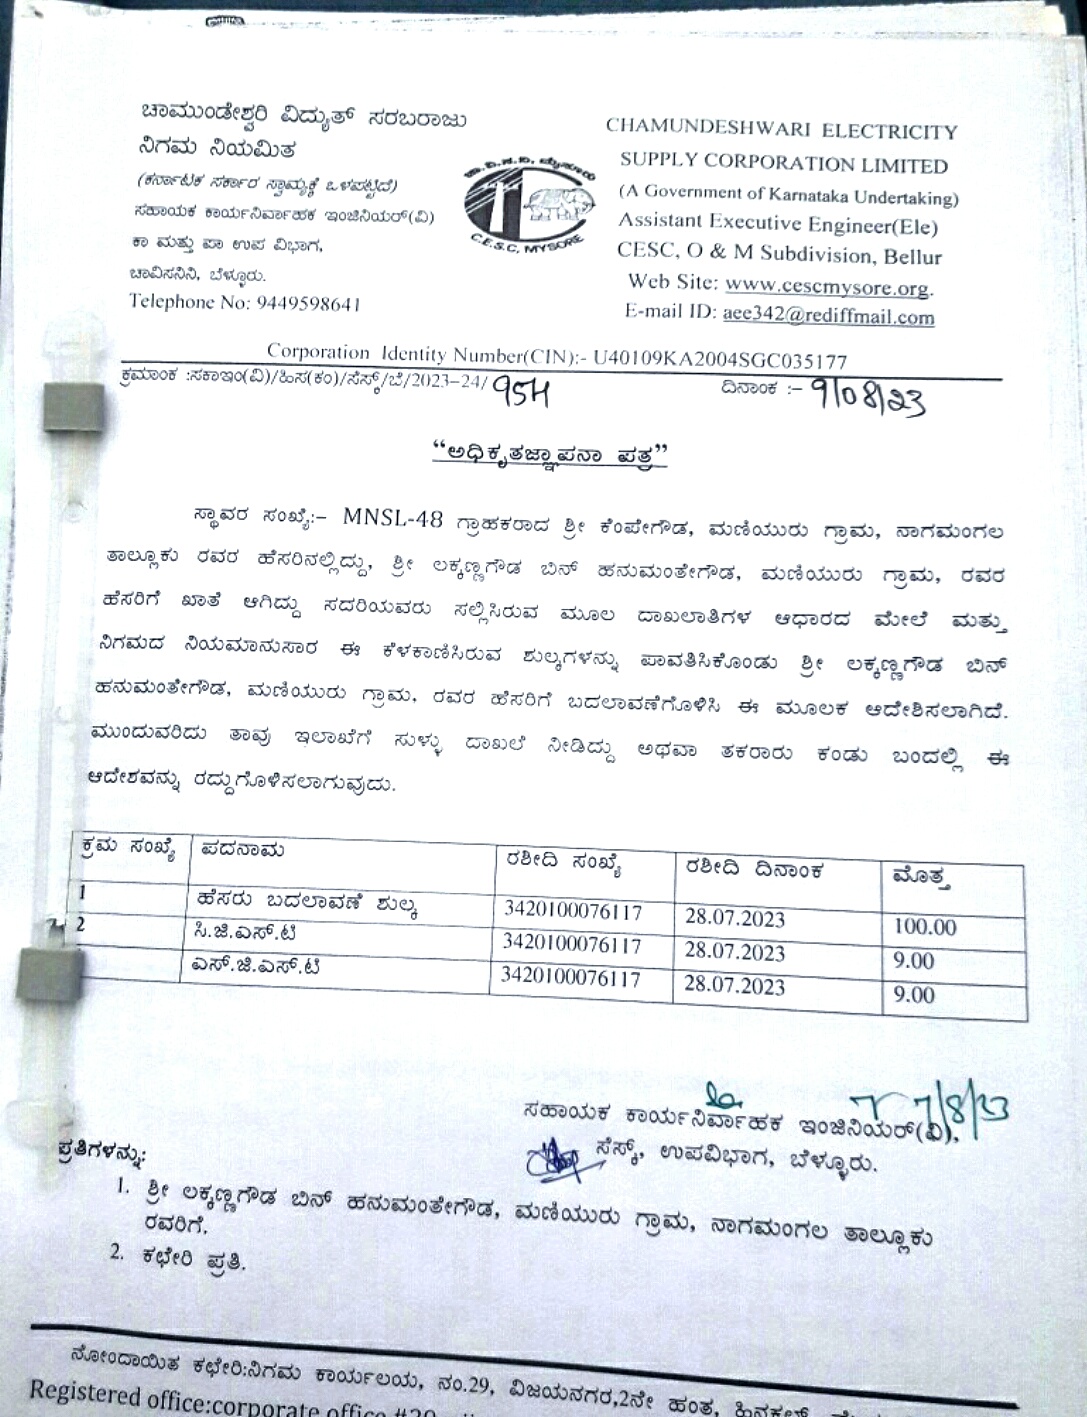 ಚಾಮುಂಡೇಶ್ವರಿ ವಿದ್ಯುತ್ ಸರಬರಾಜು
ನಿಗಮ ನಿಯಮಿತ
(ಕರ್ನಾಟಕ ಸರ್ಕಾರ ಸ್ವಾಮ್ಯಕ್ಕೆ ಒಳಪಟ್ಟಿದೆ)
ಸಹಾಯಕ ಕಾರ್ಯನಿರ್ವಾಹಕ ಇಂಜಿನಿಯರ್(ವಿ)
ಕಾ ಮತ್ತು ಪಾ ಉಪ ವಿಭಾಗ,
ಚಾವಿಸನಿನಿ, ಬೆಳ್ಳೂರು.
Telephone No: 9449598641
ಚಾ.ವಿ.ಸ.ನಿ. ಮೈಸೂರು
C.E.S.C, MYSORE
CHAMUNDESHWARI ELECTRICITY
SUPPLY CORPORATION LIMITED
(A Government of Karnataka Undertaking)
Assistant Executive Engineer(Ele)
CESC, O & M Subdivision, Bellur
Web Site: www.cescmysore.org.
E-mail ID: aee342@rediffmail.com
Corporation Identity Number(CIN):- U40109KA2004SGC035177
ಕ್ರಮಾಂಕ :ಸಕಾಇಂ(ವಿ)/ಹಿಸ(ಕಂ)/ಸೆಸ್ಕ್/ಬೆ/2023-24/ 954 ದಿನಾಂಕ :- 9/08/23
“ಅಧಿಕೃತಜ್ಞಾಪನಾ ಪತ್ರ”
ಸ್ಥಾವರ ಸಂಖ್ಯೆ:- MNSL-48 ಗ್ರಾಹಕರಾದ ಶ್ರೀ ಕೆಂಪೇಗೌಡ, ಮಣಿಯುರು ಗ್ರಾಮ, ನಾಗಮಂಗಲ
ತಾಲ್ಲೂಕು ರವರ ಹೆಸರಿನಲ್ಲಿದ್ದು, ಶ್ರೀ ಲಕ್ಕಣ್ಣಗೌಡ ಬಿನ್ ಹನುಮಂತೇಗೌಡ, ಮಣಿಯುರು ಗ್ರಾಮ, ರವರ
ಹೆಸರಿಗೆ ಖಾತೆ ಆಗಿದ್ದು ಸದರಿಯವರು ಸಲ್ಲಿಸಿರುವ ಮೂಲ ದಾಖಲಾತಿಗಳ ಆಧಾರದ ಮೇಲೆ ಮತ್ತು
ನಿಗಮದ ನಿಯಮಾನುಸಾರ ಈ ಕೆಳಕಾಣಿಸಿರುವ ಶುಲ್ಕಗಳನ್ನು ಪಾವತಿಸಿಕೊಂಡು ಶ್ರೀ ಲಕ್ಕಣ್ಣಗೌಡ ಬಿನ್
ಹನುಮಂತೇಗೌಡ, ಮಣಿಯುರು ಗ್ರಾಮ, ರವರ ಹೆಸರಿಗೆ ಬದಲಾವಣೆಗೊಳಿಸಿ ಈ ಮೂಲಕ ಆದೇಶಿಸಲಾಗಿದೆ.
ಮುಂದುವರಿದು ತಾವು ಇಲಾಖೆಗೆ ಸುಳ್ಳು ದಾಖಲೆ ನೀಡಿದ್ದು ಅಥವಾ ತಕರಾರು ಕಂಡು ಬಂದಲ್ಲಿ ಈ
ಆದೇಶವನ್ನು ರದ್ದುಗೊಳಿಸಲಾಗುವುದು.
ಕ್ರಮ ಸಂಖ್ಯೆ ಪದನಾಮ ರಶೀದಿ ಸಂಖ್ಯೆ ರಶೀದಿ ದಿನಾಂಕ ಮೊತ್ತ
1 ಹೆಸರು ಬದಲಾವಣೆ ಶುಲ್ಕ 3420100076117 28.07.2023 100.00
2 ಸಿ.ಜಿ.ಎಸ್.ಟಿ 3420100076117 28.07.2023 9.00
ಎಸ್.ಜಿ.ಎಸ್.ಟಿ 3420100076117 28.07.2023 9.00
7/8/23
ಸಹಾಯಕ ಕಾರ್ಯನಿರ್ವಾಹಕ ಇಂಜಿನಿಯರ್(ವಿ),
ಸೆಸ್ಕ್, ಉಪವಿಭಾಗ, ಬೆಳ್ಳೂರು.
ಪ್ರತಿಗಳನ್ನು:
1. ಶ್ರೀ ಲಕ್ಕಣ್ಣಗೌಡ ಬಿನ್ ಹನುಮಂತೇಗೌಡ, ಮಣಿಯುರು ಗ್ರಾಮ, ನಾಗಮಂಗಲ ತಾಲ್ಲೂಕು
ರವರಿಗೆ.
2. ಕಛೇರಿ ಪ್ರತಿ.
ನೋಂದಾಯಿತ ಕಛೇರಿ:ನಿಗಮ ಕಾರ್ಯಲಯ, ನಂ.29, ವಿಜಯನಗರ,2ನೇ ಹಂತ, ಹಿನಕಲ್,
Registered office:corporate office #29